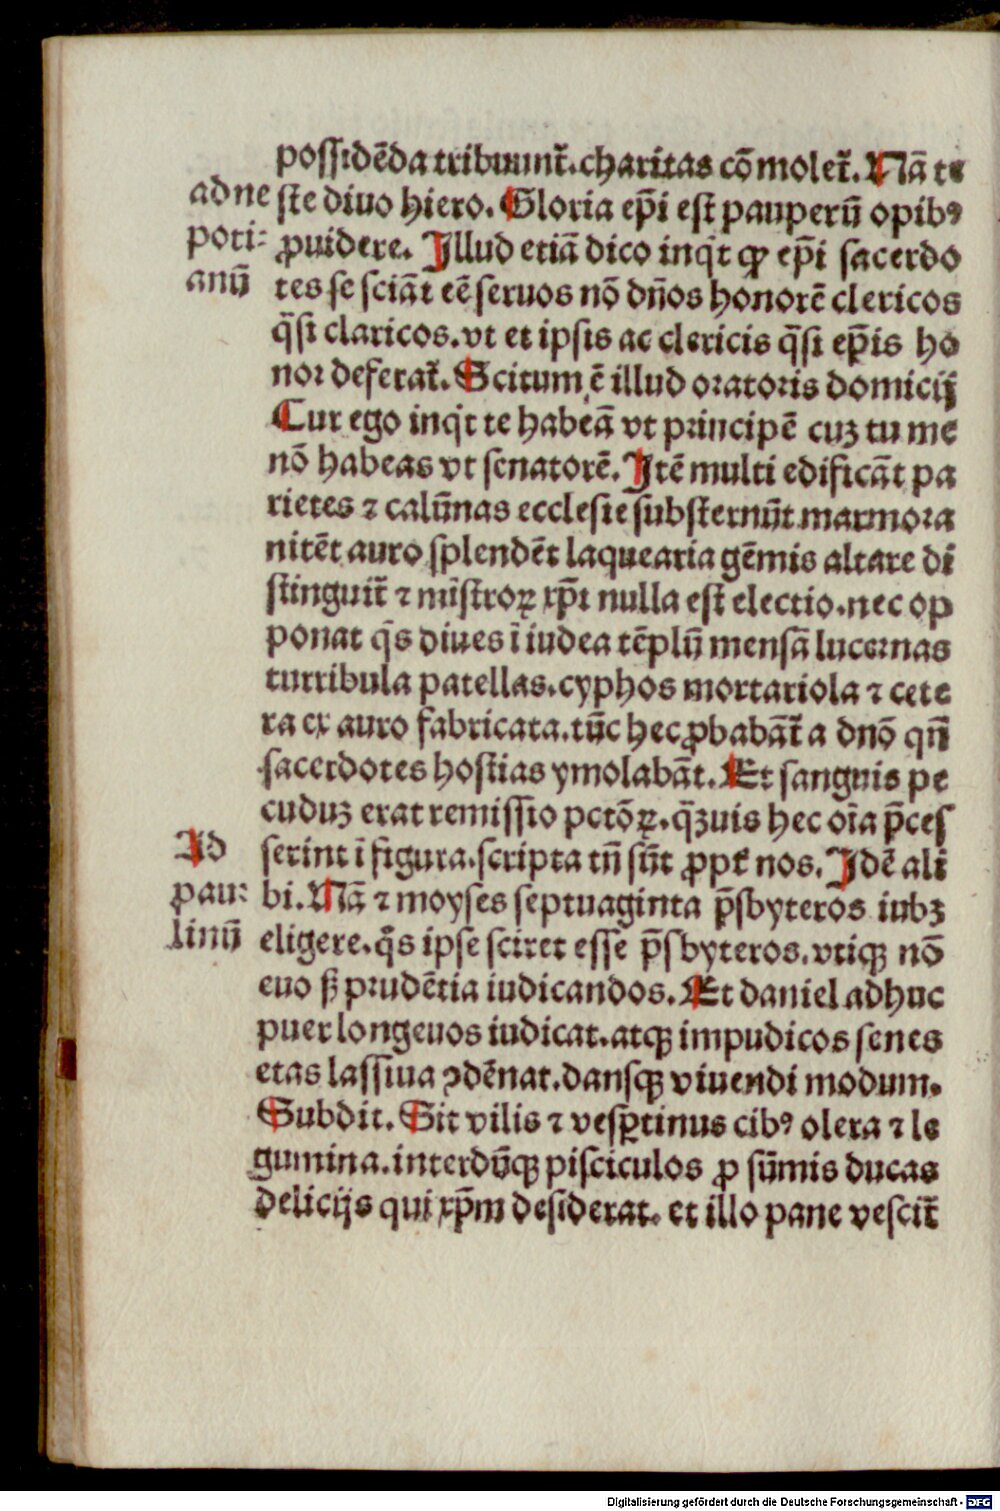 possidēda tribuunt᷑. charitas cōmolet᷑. Nā te
ad ne
ste diuo hiero. Gloria ep̄i est pauperū opibꝰ
poti⸗
ꝓuidere. Illud etiā dico inqͥt ꝙ ep̄i sacerdo
anū
tes se sciāt eē seruos nō dn̄os honorē clericos
q̄si claricos. vt et ipsis ac clericis q̄si ep̄is ho
nor deferat᷑. Scitum ē illud oratoris domicij
Cur ego inqͥt te habeā vt principē cuꝫ tu me
nō habeas vt senatorē. Itē multi edificāt pa
rietes ⁊ calūnas ecclesie substernūt marmora
nitēt auro splendēt laquearia gēmis altare di
stinguit᷑ ⁊ mīstroꝝ xp̄i nulla est electio. nec op
ponat qͥs diues ī iudea tēplū mensā lucernas
turribula patellas. cyphos mortariola ⁊ cete
ra ex auro fabricata. tūc hec ꝓbabāt᷑ a dnō qn̄
sacerdotes hostias ymolabāt. Et sanguis pe
cuduꝫ erat remissio pctōꝝ. q̄ꝫuis hec oīa p̄ces
Ad
serint ī figura. scripta tn̄ sūt ꝓpt᷑ nos. Idē ali
pau⸗
bi. Nā ⁊ moyses septuaginta p̄sbyteros iubꝫ
linū
eligere. qͦs ipse sciret esse p̄sbyteros. vtiqꝫ nō
euo sꝫ prudētia iudicandos. Et daniel adhuc
puer longeuos iudicat. atqꝫ impudicos senes
etas lassiua ꝯdēnat. dansqꝫ viuendi modum.
Subdit. Sit vilis ⁊ vesꝑtinus cibꝰ olera ⁊ le
gumina. interdūqꝫ pisciculos ꝓ sūmis ducas
delicijs qui xp̄m desiderat. et illo pane vescit᷑
Digitalisierung gefördert durch die Deutsche Forschungsgemeinschaft - DFG